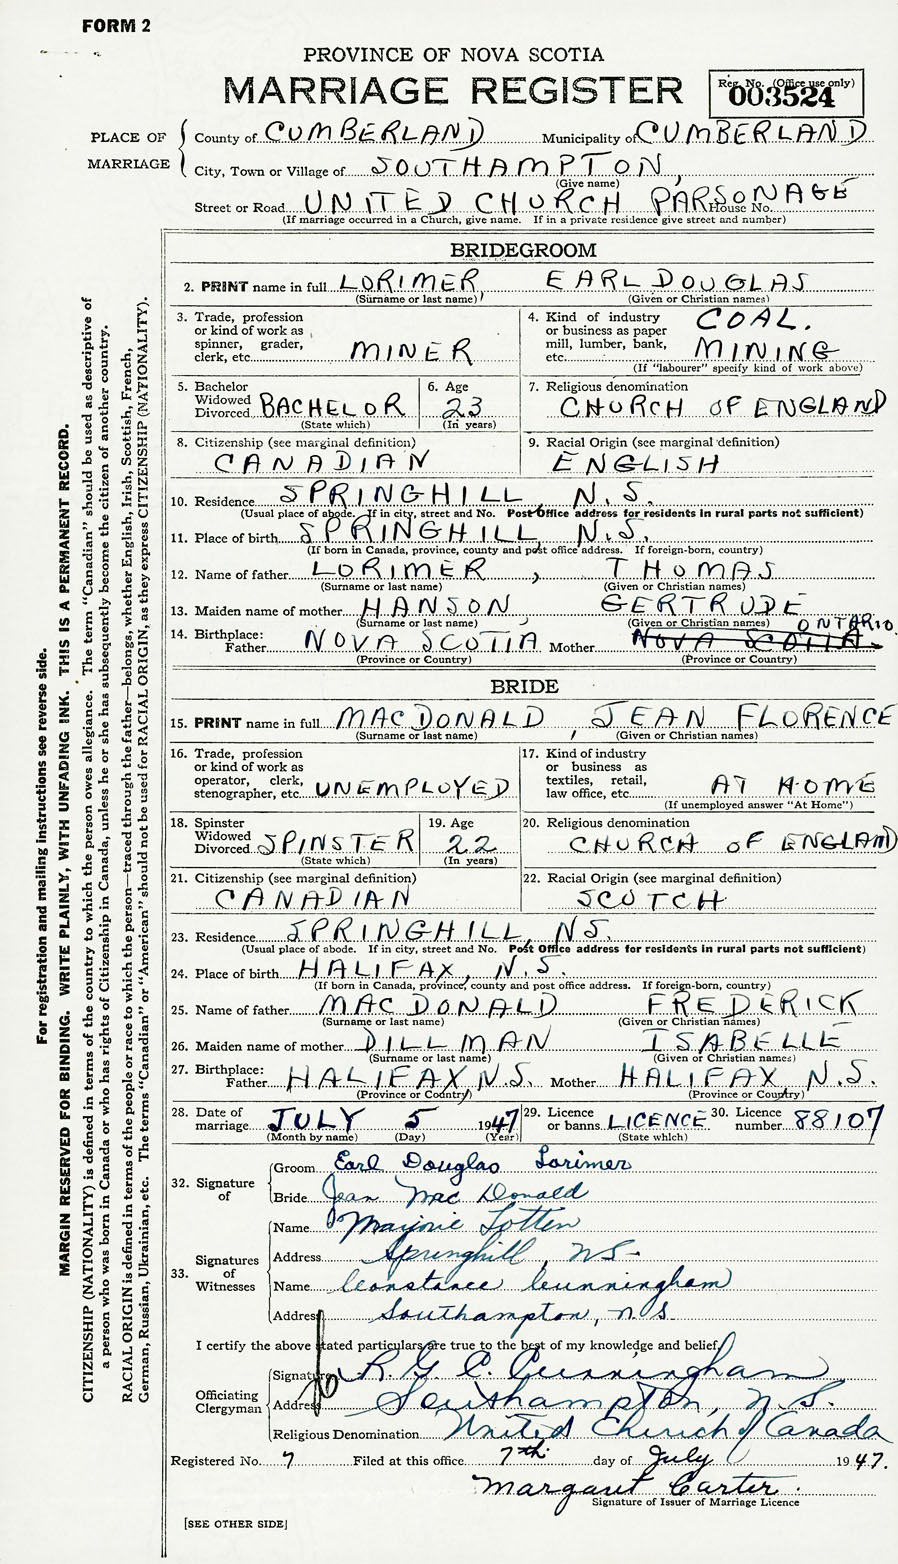 FORM 2
PROVINCE OF NOVA SCOTIA
MARRIAGE REGISTER
Reg. No. (Office use only)
003524
PLACE OF MARRIAGE
County of CUMBERLAND Municipality of CUMBERLAND
City, Town or Village of SOUTHAMPTON,
(Give name)
Street or Road UNITED CHURCH PARSONAGE House No.
(If marriage occurred in a Church, give name. If in a private residence give street and number)
BRIDEGROOM
2. PRINT name in full LORIMER, EARL DOUGLAS
(Surname or last name) (Given or Christian names)
3. Trade, profession
or kind of work as
spinner, grader,
clerk, etc. MINER
4. Kind of industry COAL.
or business as paper
mill, lumber, bank,
etc. MINING
(If "labourer" specify kind of work above)
5. Bachelor
Widowed
Divorced BACHELOR
(State which)
6. Age
23
(In years)
7. Religious denomination
CHURCH OF ENGLAND
8. Citizenship (see marginal definition)
CANADIAN
9. Racial Origin (see marginal definition)
ENGLISH
10. Residence SPRINGHILL, N.S.
(Usual place of abode. If in city, street and No. Post Office address for residents in rural parts not sufficient)
11. Place of birth SPRINGHILL, N.S.
(If born in Canada, province, county and post office address. If foreign-born, country)
12. Name of father LORIMER, THOMAS
(Surname or last name) (Given or Christian names)
13. Maiden name of mother HANSON, GERTRUDE
(Surname or last name) (Given or Christian names)
14. Birthplace: ONTARIO.
Father NOVA SCOTIA Mother NOVA SCOTIA.
(Province or Country) (Province or Country)
BRIDE
15. PRINT name in full MACDONALD, JEAN FLORENCE
(Surname or last name) (Given or Christian names)
16. Trade, profession
or kind of work as
operator, clerk,
stenographer, etc. UNEMPLOYED
17. Kind of industry
or business as
textiles, retail,
law office, etc. AT HOME
(If unemployed answer "At Home")
18. Spinster
Widowed
Divorced SPINSTER
(State which)
19. Age
22
(In years)
20. Religious denomination
CHURCH OF ENGLAND
21. Citizenship (see marginal definition)
CANADIAN
22. Racial Origin (see marginal definition)
SCOTCH
23. Residence SPRINGHILL, NS.
(Usual place of abode. If in city, street and No. Post Office address for residents in rural parts not sufficient)
24. Place of birth HALIFAX, N.S.
(If born in Canada, province, county and post office address. If foreign-born, country)
25. Name of father MACDONALD FREDERICK
(Surname or last name) (Given or Christian names)
26. Maiden name of mother DILLMAN ISABELLE
(Surname or last name) (Given or Christian names)
27. Birthplace:
Father HALIFAX, N.S. Mother HALIFAX, N.S.
(Province or Country) (Province or Country)
28. Date of
marriage JULY 5 1947
(Month by name) (Day) (Year)
29. Licence
or banns LICENCE
(State which)
30. Licence
number 88107
32. Signature of
Groom Earl Douglas Lorimer
Bride Jean Mac Donald
33. Signatures of Witnesses
Name Marjorie Totten
Address Springhill, NS-
Name Constance Cunningham
Address Southampton, N.S.
I certify the above stated particulars are true to the best of my knowledge and belief,
Officiating Clergyman
Signature R. G. C. Cunningham
Address Southampton, N.S.
Religious Denomination United Church of Canada
Registered No. 7 Filed at this office 7th day of July 1947.
Margaret Carter.
Signature of Issuer of Marriage Licence
[SEE OTHER SIDE]
For registration and mailing instructions see reverse side.
MARGIN RESERVED FOR BINDING. WRITE PLAINLY, WITH UNFADING INK. THIS IS A PERMANENT RECORD.
CITIZENSHIP (NATIONALITY) is defined in terms of the country to which the person owes allegiance. The term "Canadian" should be used as descriptive of
a person who was born in Canada or who has rights of Citizenship in Canada, unless he or she has subsequently become the citizen of another country.
RACIAL ORIGIN is defined in terms of the people or race to which the person—traced through the father—belongs, whether English, Irish, Scottish, French,
German, Russian, Ukrainian, etc. The terms "Canadian" or "American" should not be used for RACIAL ORIGIN, as they express CITIZENSHIP (NATIONALITY).